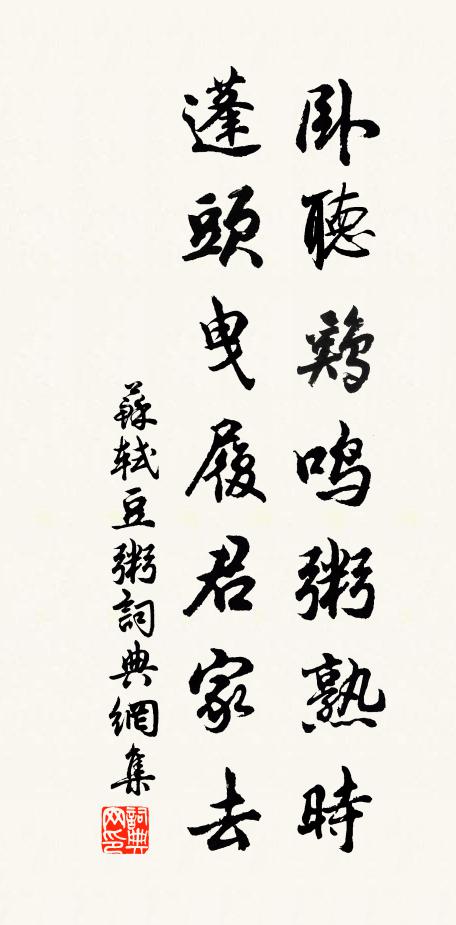 卧聽鷄鳴粥熟時
蓬頭曳履君家去
蘇軾豆粥詞典網集
詞典網印